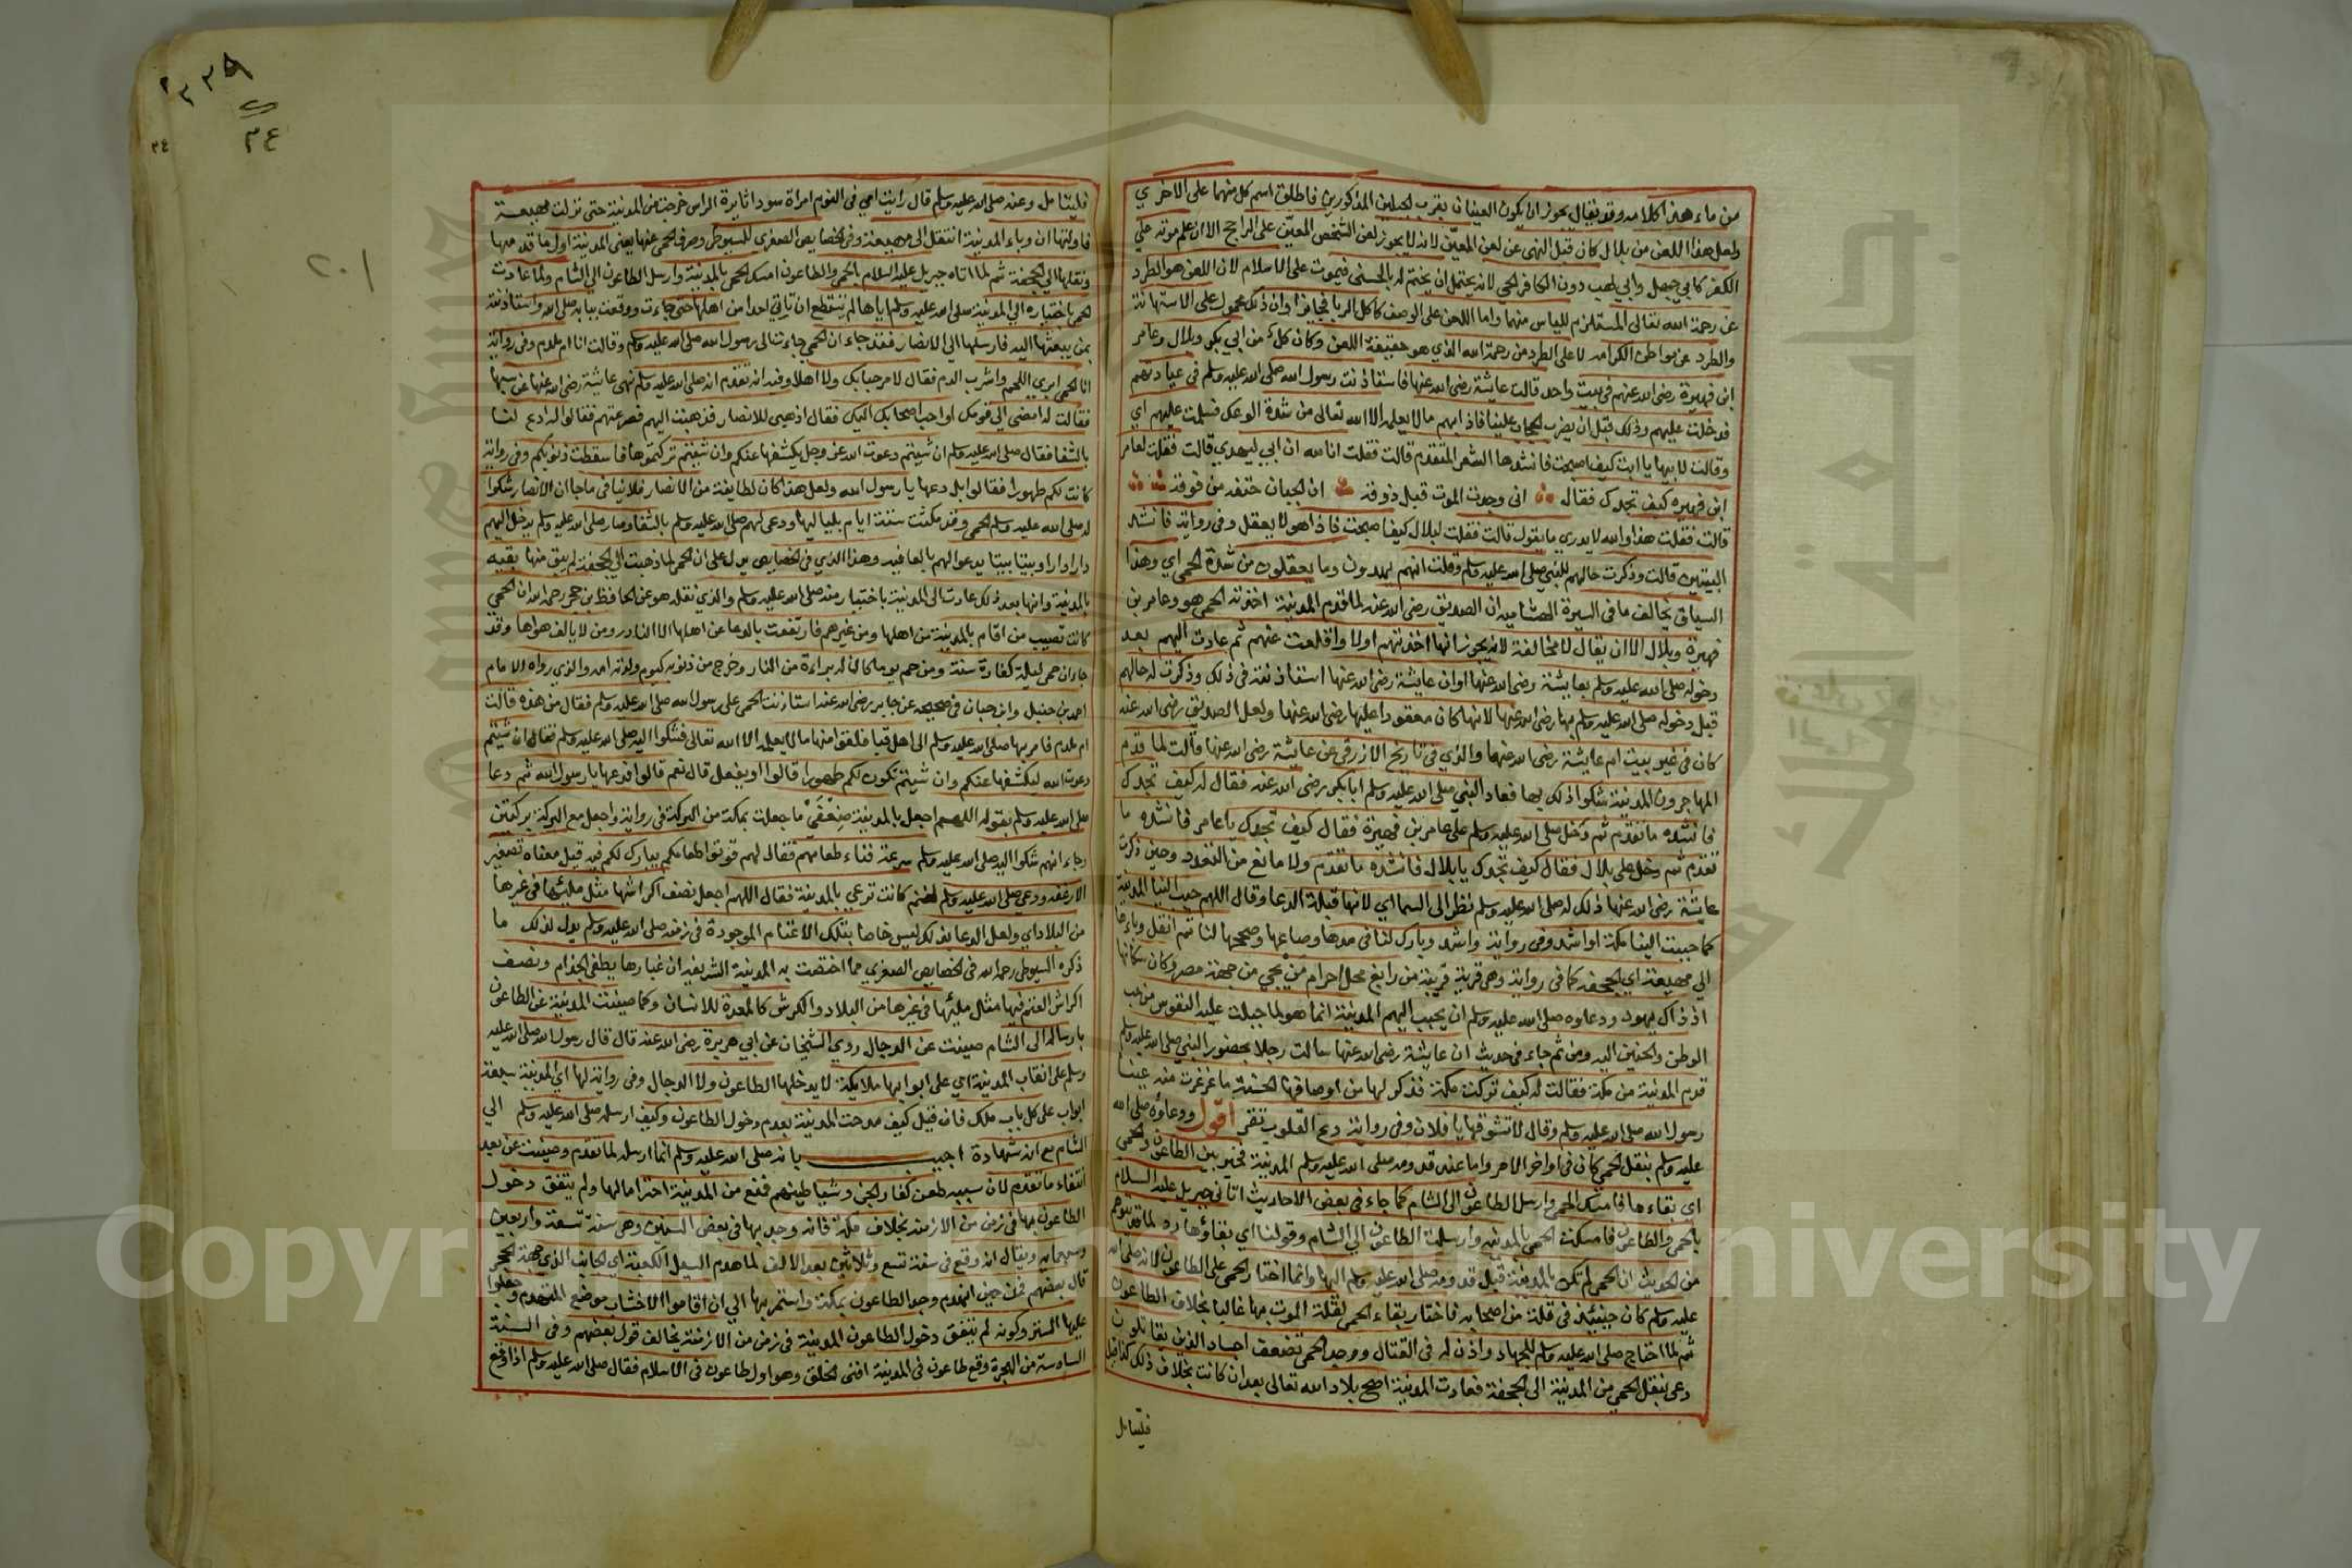 من ماء هذا كلامه وقد يقال يجوز ان يكون العينان بقرب الجبلين المذكورين فاطلق اسم كل منهما على الاخرى
ولعل هذا اللعن من بلال كان قبل النهي عن لعن المعين لانه لا يجوز لعن الشخص المعين على الراجح الا ان علم موته على
الكفر كابي جهل وابي لهب دون الكافر الحي لانه يحتمل ان يختم له بالحسنى فيموت على الاسلام لان اللعن هو الطرد
عن رحمة الله تعالى المستلزم للياس منها واما اللعن على الوصف كاكل الربا فجايز او ان ذلك محمول على الاستهانة
والطرد عن مواطن الكرامه لا على الطرد من رحمة الله الذي هو حقيقة اللعن وكان كل من ابي بكر وبلال وعامر
ابن فهيرة رضى الله عنهم في بيت واحد قالت عايشة رضى الله عنها فاستاذنت رسول الله صلى الله عليه وسلم في عيادتهم
فدخلت عليهم وذلك قبل ان يضرب الحجاب علينا فاذا بهم ما لا يعلمه الا الله تعالى من شدة الوعك فسلمت عليهم اي
وقالت لابيها يا ابت كيف اصبحت فانشدها الشعر المتقدم قالت فقلت انا لله ان ابي ليهدي قالت فقلت لعامر
ابن فهيره كيف تجدك فقال اني وجدت الموت قبل ذوقه ان الجبان حتفه من فوقه
قالت فقلت هذا والله لا يدري ما يقول قالت فقلت لبلال كيف اصبحت فاذا هو لا يعقل وفي رواية فانشد
البيتين قالت وذكرت حالهم للنبي صلى الله عليه وسلم وقلت انهم ليهدون وما يعقلون من شدة الحمى اي وهذا
السياق يخالف ما في السيرة الهشاميه ان الصديق رضى الله عنه لما قدم المدينة اخذته الحمى هو وعامر بن
فهيرة وبلال الا ان يقال لا مخالفة لانه يجوز انها اخذتهم اولا واقلعت عنهم ثم عادت اليهم بعد
دخوله صلى الله عليه وسلم بعايشة رضى الله عنها او ان عايشة رضى الله عنها استاذنته في ذلك وذكرت له حالهم
قبل دخوله صلى الله عليه وسلم بها رضى الله عنها لانها كان معقودا عليها رضى الله عنها ولعل الصديق رضى الله عنه
كان في غير بيت ام عايشة رضى الله عنها والذي في تاريخ الازرقي عن عايشة رضى الله عنها قالت لما قدم
المهاجرون المدينة شكوا ذلك بها فعاد النبي صلى الله عليه وسلم ابا بكر رضى الله عنه فقال له كيف تجدك
فانشده ما تقدم ثم دخل صلى الله عليه وسلم على عامر بن فهيرة فقال كيف تجدك يا عامر فانشده ما
تقدم ثم دخل على بلال فقال كيف تجدك يا بلال فانشده ما تقدم ولا مانع من التعدد وحين ذكرت
عايشة رضى الله عنها ذلك له صلى الله عليه وسلم نظر الى السما اي لانها قبلة الدعا وقال اللهم حبب الينا المدينة
كما حببت الينا مكة او اشد وفي رواية واشد وبارك لنا في مدها وصاعها وصححها لنا ثم انقل وباءها
الى مهيعة اي الجحفه كما في رواية وهي قرية قريبة من رابغ محل احرام من يجي من جهة مصر وكان سكانها
اذ ذاك يهود ودعاوه صلى الله عليه وسلم ان يحبب اليهم المدينة انما هو لما جبلت عليه النفوس من حب
الوطن والحنين اليه ومن ثم جاء في حديث ان عايشة رضى الله عنها سالت رجلا بحضور النبي صلى الله عليه وسلم
قدم المدينة من مكة فقالت له كيف تركت مكة فذكر لها من اوصافها الحسنة ما غرغرت منه عينا
رسول الله صلى الله عليه وسلم وقال لا تشوقنا يا فلان وفي رواية دع القلوب تقر اقول ودعاؤه صلى الله
عليه وسلم بنقل الحمى كان في اواخر الامر واما عند قدومه صلى الله عليه وسلم المدينة فخير بين الطاعون والحمى
اي بقاءها فامسك الحمى وارسل الطاعون الى الشام كما جاء في بعض الاحاديث اتاني جبريل عليه السلام
بالحمى والطاعون فامسكت الحمى بالمدينه وارسلت الطاعون الى الشام وقولنا اي بقاؤها رد لما قد يتوهم
من الحديث ان الحمى لم تكن بالمدينة قبل قدومه صلى الله عليه وسلم اليها وانما اختار الحمى على الطاعون لانه صلى الله
عليه وسلم كان حينئذ في قلة من اصحابه فاختار بقاء الحمى لقلة الموت بها غالبا بخلاف الطاعون
ثم لما احتاج صلى الله عليه وسلم للجهاد واذن له في القتال ووجد الحمى تضعف اجساد الذين يقاتلون
دعى بنقل الحمى من المدينة الى الجحفة فعادت المدينة اصح بلاد الله تعالى بعد ان كانت بخلاف ذلك كذا قيل
فليتامل
٢٠١
٣٤
٣٤
فليتامل وعنه صلى الله عليه وسلم قال رايت اي في النوم امراة سودا ثايرة الراس خرجت من المدينة حتى نزلت مهيعة
فاولتها ان وباء المدينة انتقل الى مهيعة وفي الخصايص الصغرى للسيوطي وصرف الحمى عنها يعني المدينة اول ما قدمها
ونقلها الى الجحفة ثم لما اتاه جبريل عليه السلام بالحمى والطاعون امسك الحمى بالمدينة وارسل الطاعون الى الشام ولما عادت
الحمى باختياره الى المدينة صلى الله عليه وسلم اياها لم تستطع ان تاتي احدا من اهلها حتى جاءت ووقفت ببابه صلى الله واستاذنته
بمن يبعثها اليه فارسلها الى الانصار فقد جاء ان الحمى جاءت الى رسول الله صلى الله عليه وسلم وقالت انا ام ملدم وفي رواية
انا الحمى ابري اللحم واشرب الدم فقال لا مرحبا بك ولا اهلا وفيه انه تقدم انه صلى الله عليه وسلم نهى عايشة رضى الله عنها عن سبها
فقالت له امضي الى قومك او احب اصحابك اليك فقال اذهبي للانصار فذهبت اليهم فصرعتهم فقالوا له ادع لنا
بالشفا فقال صلى الله عليه وسلم ان شيتم دعوت الله عز وجل يكشفها عنكم وان شيتم تركتموها فاسقطت ذنوبكم وفي رواية
كانت لكم طهورا فقالوا بل دعها يا رسول الله ولعل هذا كان لطايفة من الانصار فلا ينافي ما جا ان الانصار شكوا
له صلى الله عليه وسلم الحمى وقد مكثت ستة ايام بلياليها ودعى لهم صلى الله عليه وسلم بالشفا وصار صلى الله عليه وسلم يدخل اليهم
دارا دارا وبيتا بيتا يدعو لهم بالعافيه وهذا الذي في الخصايص يدل على ان الحمى لما ذهبت الى الجحفة لم يبق منها بقيه
بالمدينة وانها بعد ذلك عادت الى المدينة باختيار منه صلى الله عليه وسلم والذي نقله هو عن الحافظ بن حجر رحمه الله ان الحمى
كانت تصيب من اقام بالمدينة من اهلها ومن غيرهم فارتفعت بالدعا عن اهلها الا النادر ومن لا يالف هواها وقد
جاء ان حمى ليلة كفارة سنة ومن حم يوما كان له براءة من النار وخرج من ذنوبه كيوم ولدته امه والذي رواه الامام
احمد بن حنبل وابن حبان في صحيحه عن جابر رضى الله عنه استاذنت الحمى على رسول الله صلى الله عليه وسلم فقال من هذه قالت
ام ملدم فامر بها صلى الله عليه وسلم الى اهل قبا فلقوا منها ما لا يعلمه الا الله تعالى فشكوا اليه صلى الله عليه وسلم فقال ان شيتم
دعوت الله ليكشفها عنكم وان شيتم تكون لكم طهورا قالوا او يفعل قال نعم قالوا فدعها يا رسول الله ثم دعا
صلى الله عليه وسلم بقوله اللهم اجعل بالمدينة ضعفي ما جعلت بمكة من البركة في رواية واجعل مع البركة بركتين
وجاء انهم شكوا اليه صلى الله عليه وسلم سرعة فناء طعامهم فقال لهم قوتوا طعامكم يبارك لكم فيه قيل معناه تصغير
الارغفه ودعى صلى الله عليه وسلم لغنم كانت ترعى بالمدينة فقال اللهم اجعل نصف اكراشها مثل ملئها في غيرها
من البلاد اي ولعل الدعا بذلك ليس خاصا بتلك الاغنام الموجودة في زمنه صلى الله عليه وسلم يدل لذلك ما
ذكره السيوطي رحمه الله في الخصايص الصغرى مما اختصت به المدينة الشريفه ان غبارها يطفي الجذام ونصف
اكراش الغنم فيها مثل مليها في غيرها من البلاد والكرش كالمعدة للانسان وكما صينت المدينة عن الطاعون
بارساله الى الشام صينت عن الدجال روى الشيخان عن ابي هريرة رضى الله عنه قال قال رسول الله صلى الله عليه
وسلم على انقاب المدينة اي على ابوابها ملايكة لا يدخلها الطاعون ولا الدجال وفي رواية لها اي المدينة سبعة
ابواب على كل باب ملك فان قيل كيف مدحت المدينة بعدم دخول الطاعون وكيف ارسله صلى الله عليه وسلم الى
الشام مع انه شهادة اجيب بانه صلى الله عليه وسلم انما ارسله لما تقدم وصينت عنه بعد
انتفاء ما تقدم لان سببه طعن كفار الجن وشياطينهم فمنع من المدينة احتراما لها ولم يتفق دخول
الطاعون بها في زمن من الازمنة بخلاف مكة فانه وجد بها في بعض السنين وهي سنة تسعة واربعين
وسبعماية ويقال انه وقع في سنة تسع وثلاثين بعد الالف لما هدم السيل الكعبة اي الجانب الذي جهة الحجر
قال بعضهم فمن حين انهدم وجد الطاعون بمكة واستمر بها الى ان اقاموا الاخشاب موضع المنهدم وجعلوا
عليها الستر وكونه لم يتفق دخول الطاعون المدينة في زمن من الازمنة يخالف قول بعضهم وفي السنة
السادسة من الهجرة وقع طاعون في المدينة افنى الخلق وهو اول طاعون في الاسلام فقال صلى الله عليه وسلم اذا وقع
Copyr
niversity